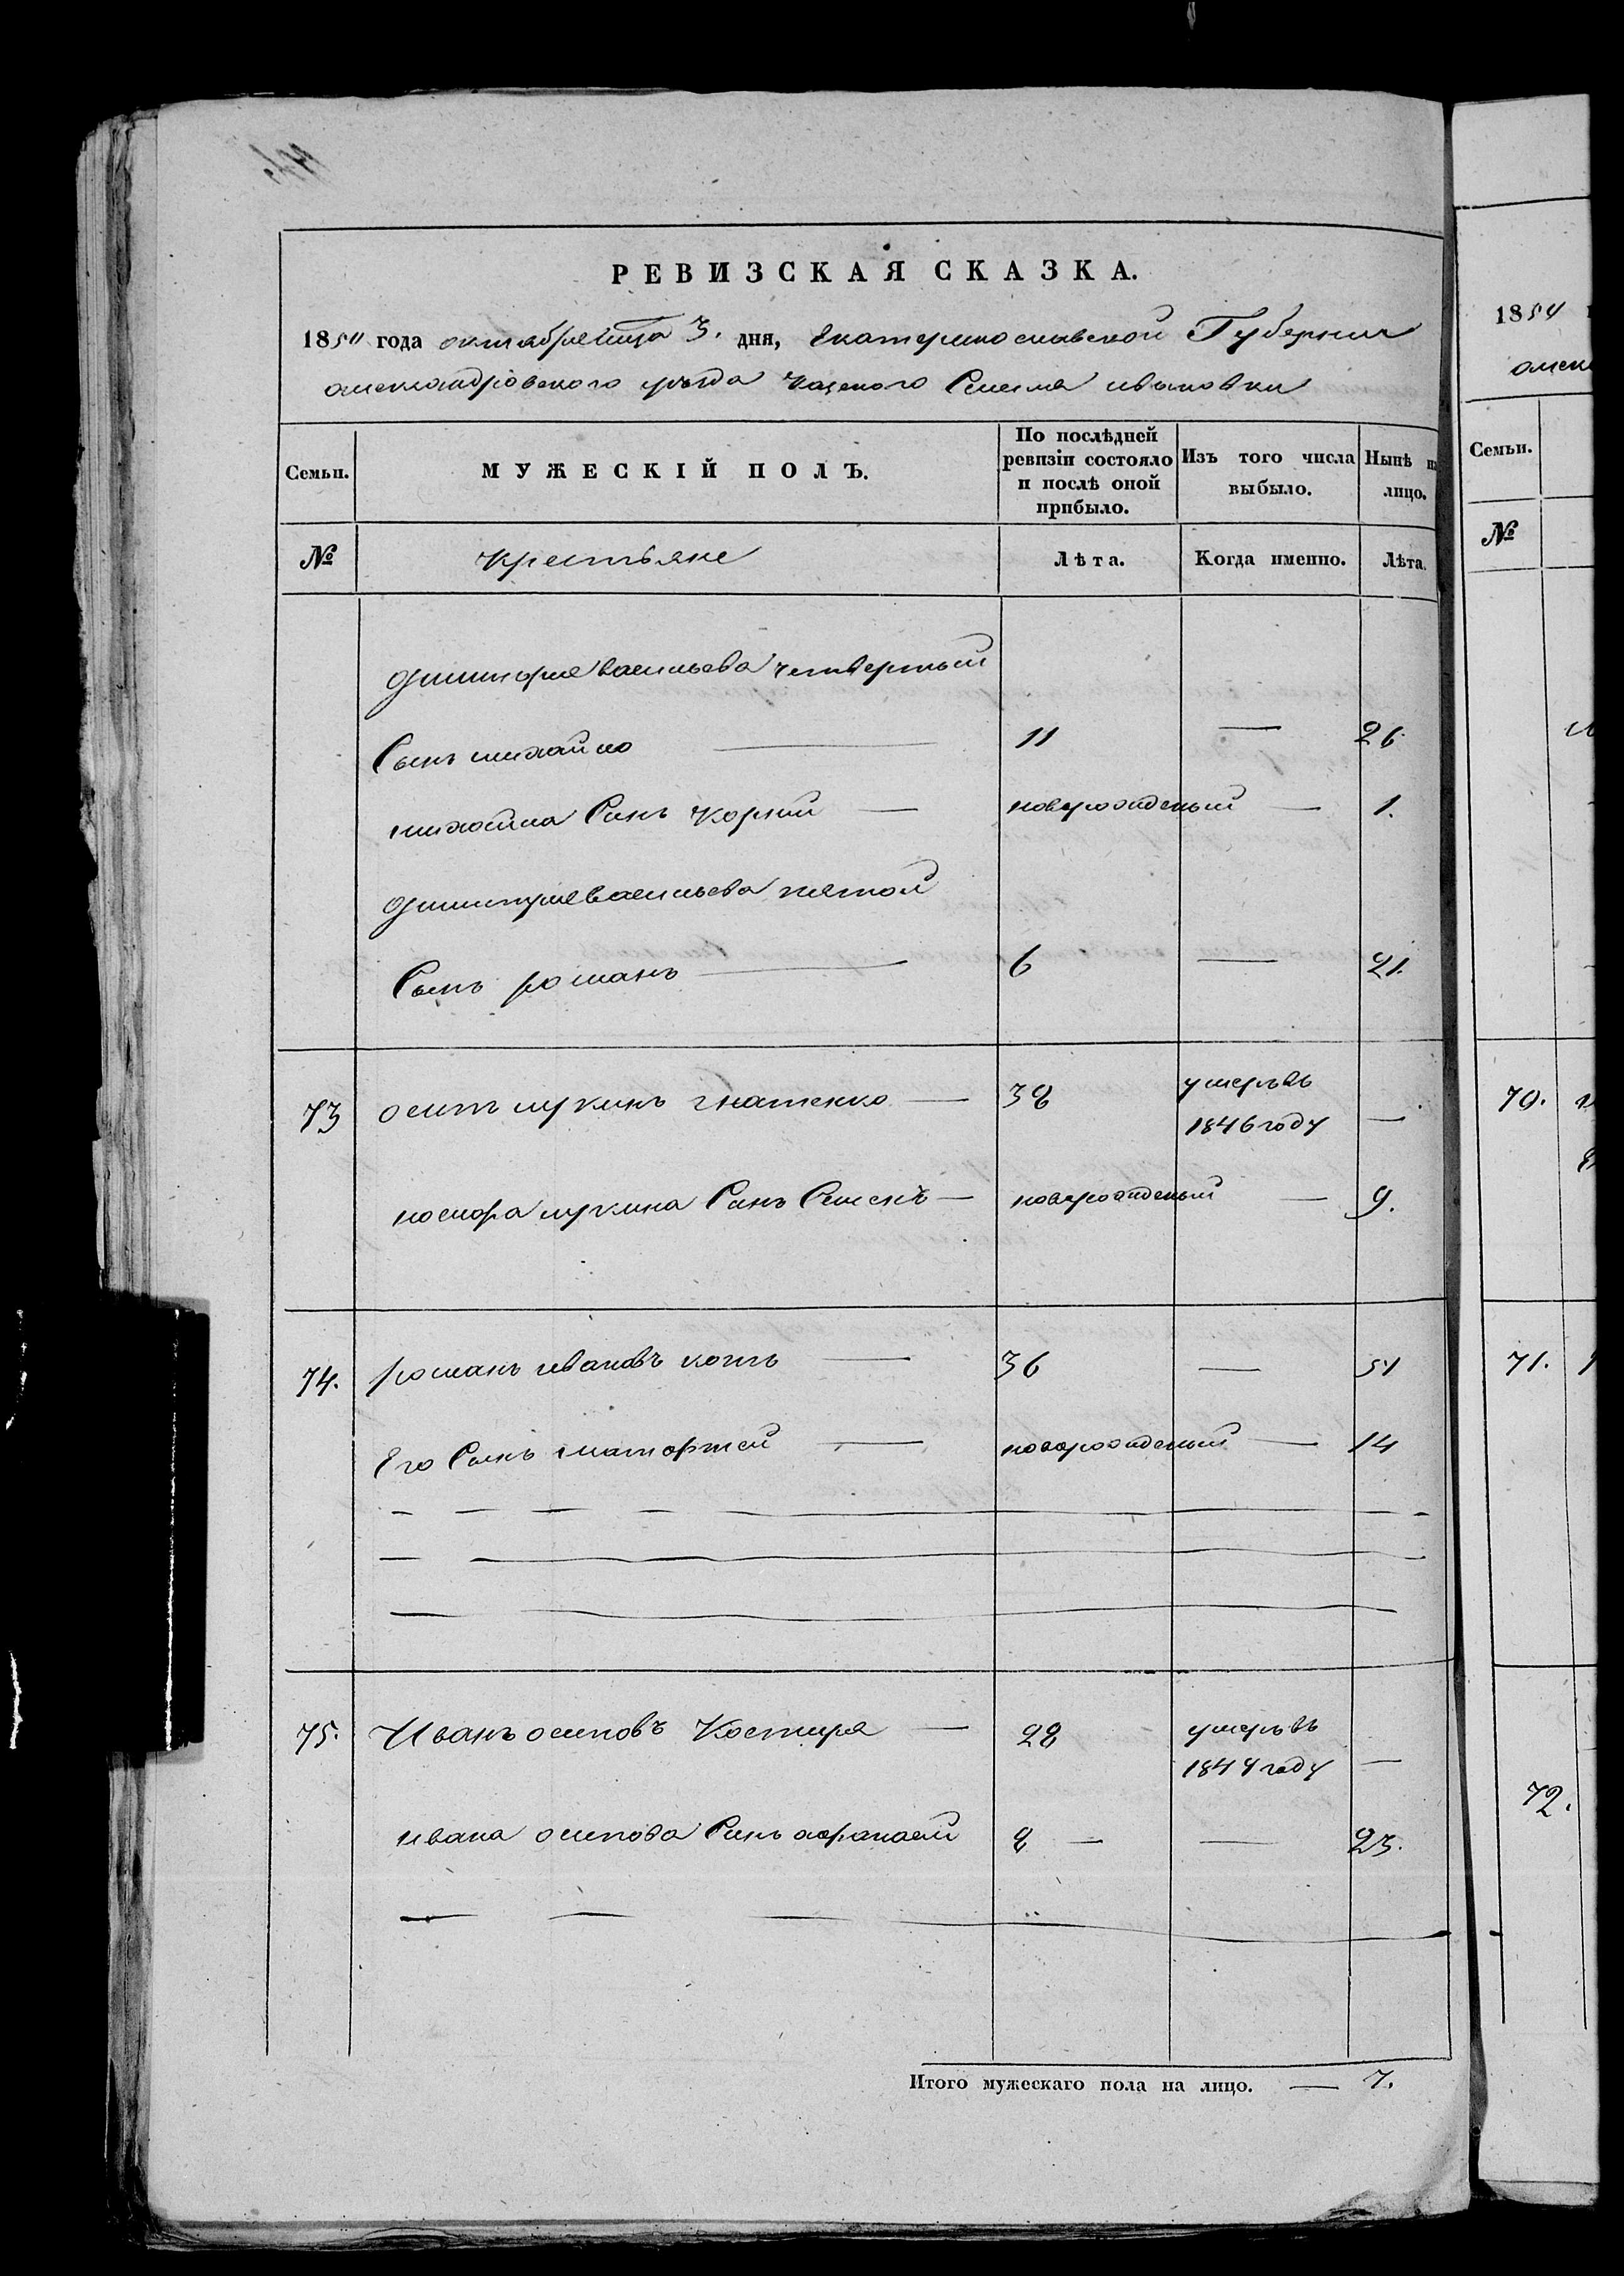 РЕВИЗСКАЯ СКАЗКА.
1850 года октября месяца 3. дня, Екатеринославской Губернии
александровского уезда казеного Селения ивановки
Семьи. МУЖЕСКІЙ ПОЛЪ. По послѣдней ревизіи состояло и послѣ оной прибыло. Изъ того числа выбыло. Нынѣ на лицо.
№ крестьяне Лѣта. Когда именно. Лѣта.
дмитория васильева четвертый
Сынъ михайло — 11 — 26.
михайла Синъ Корний — новорожденый — 1.
дмитрия васильева пятой
Сынъ романъ — 6 — 21.
73 осипъ лукинъ гнатенко — 38 умеръ въ
1846 году —
лукина Синъ Семенъ — новорожденый — 9.
74. романъ ивановъ котъ — 36 — 51
Его Сынъ — новорожденый — 14
75. Иванъ осиповъ Костиря — 28 умеръ въ
1844 году —
ивана осипова Синъ афанасий 8 — — 23.
Итого мужескаго пола на лицо. — 7.
1850
алек
Семьи.
№
70.
71.
72.